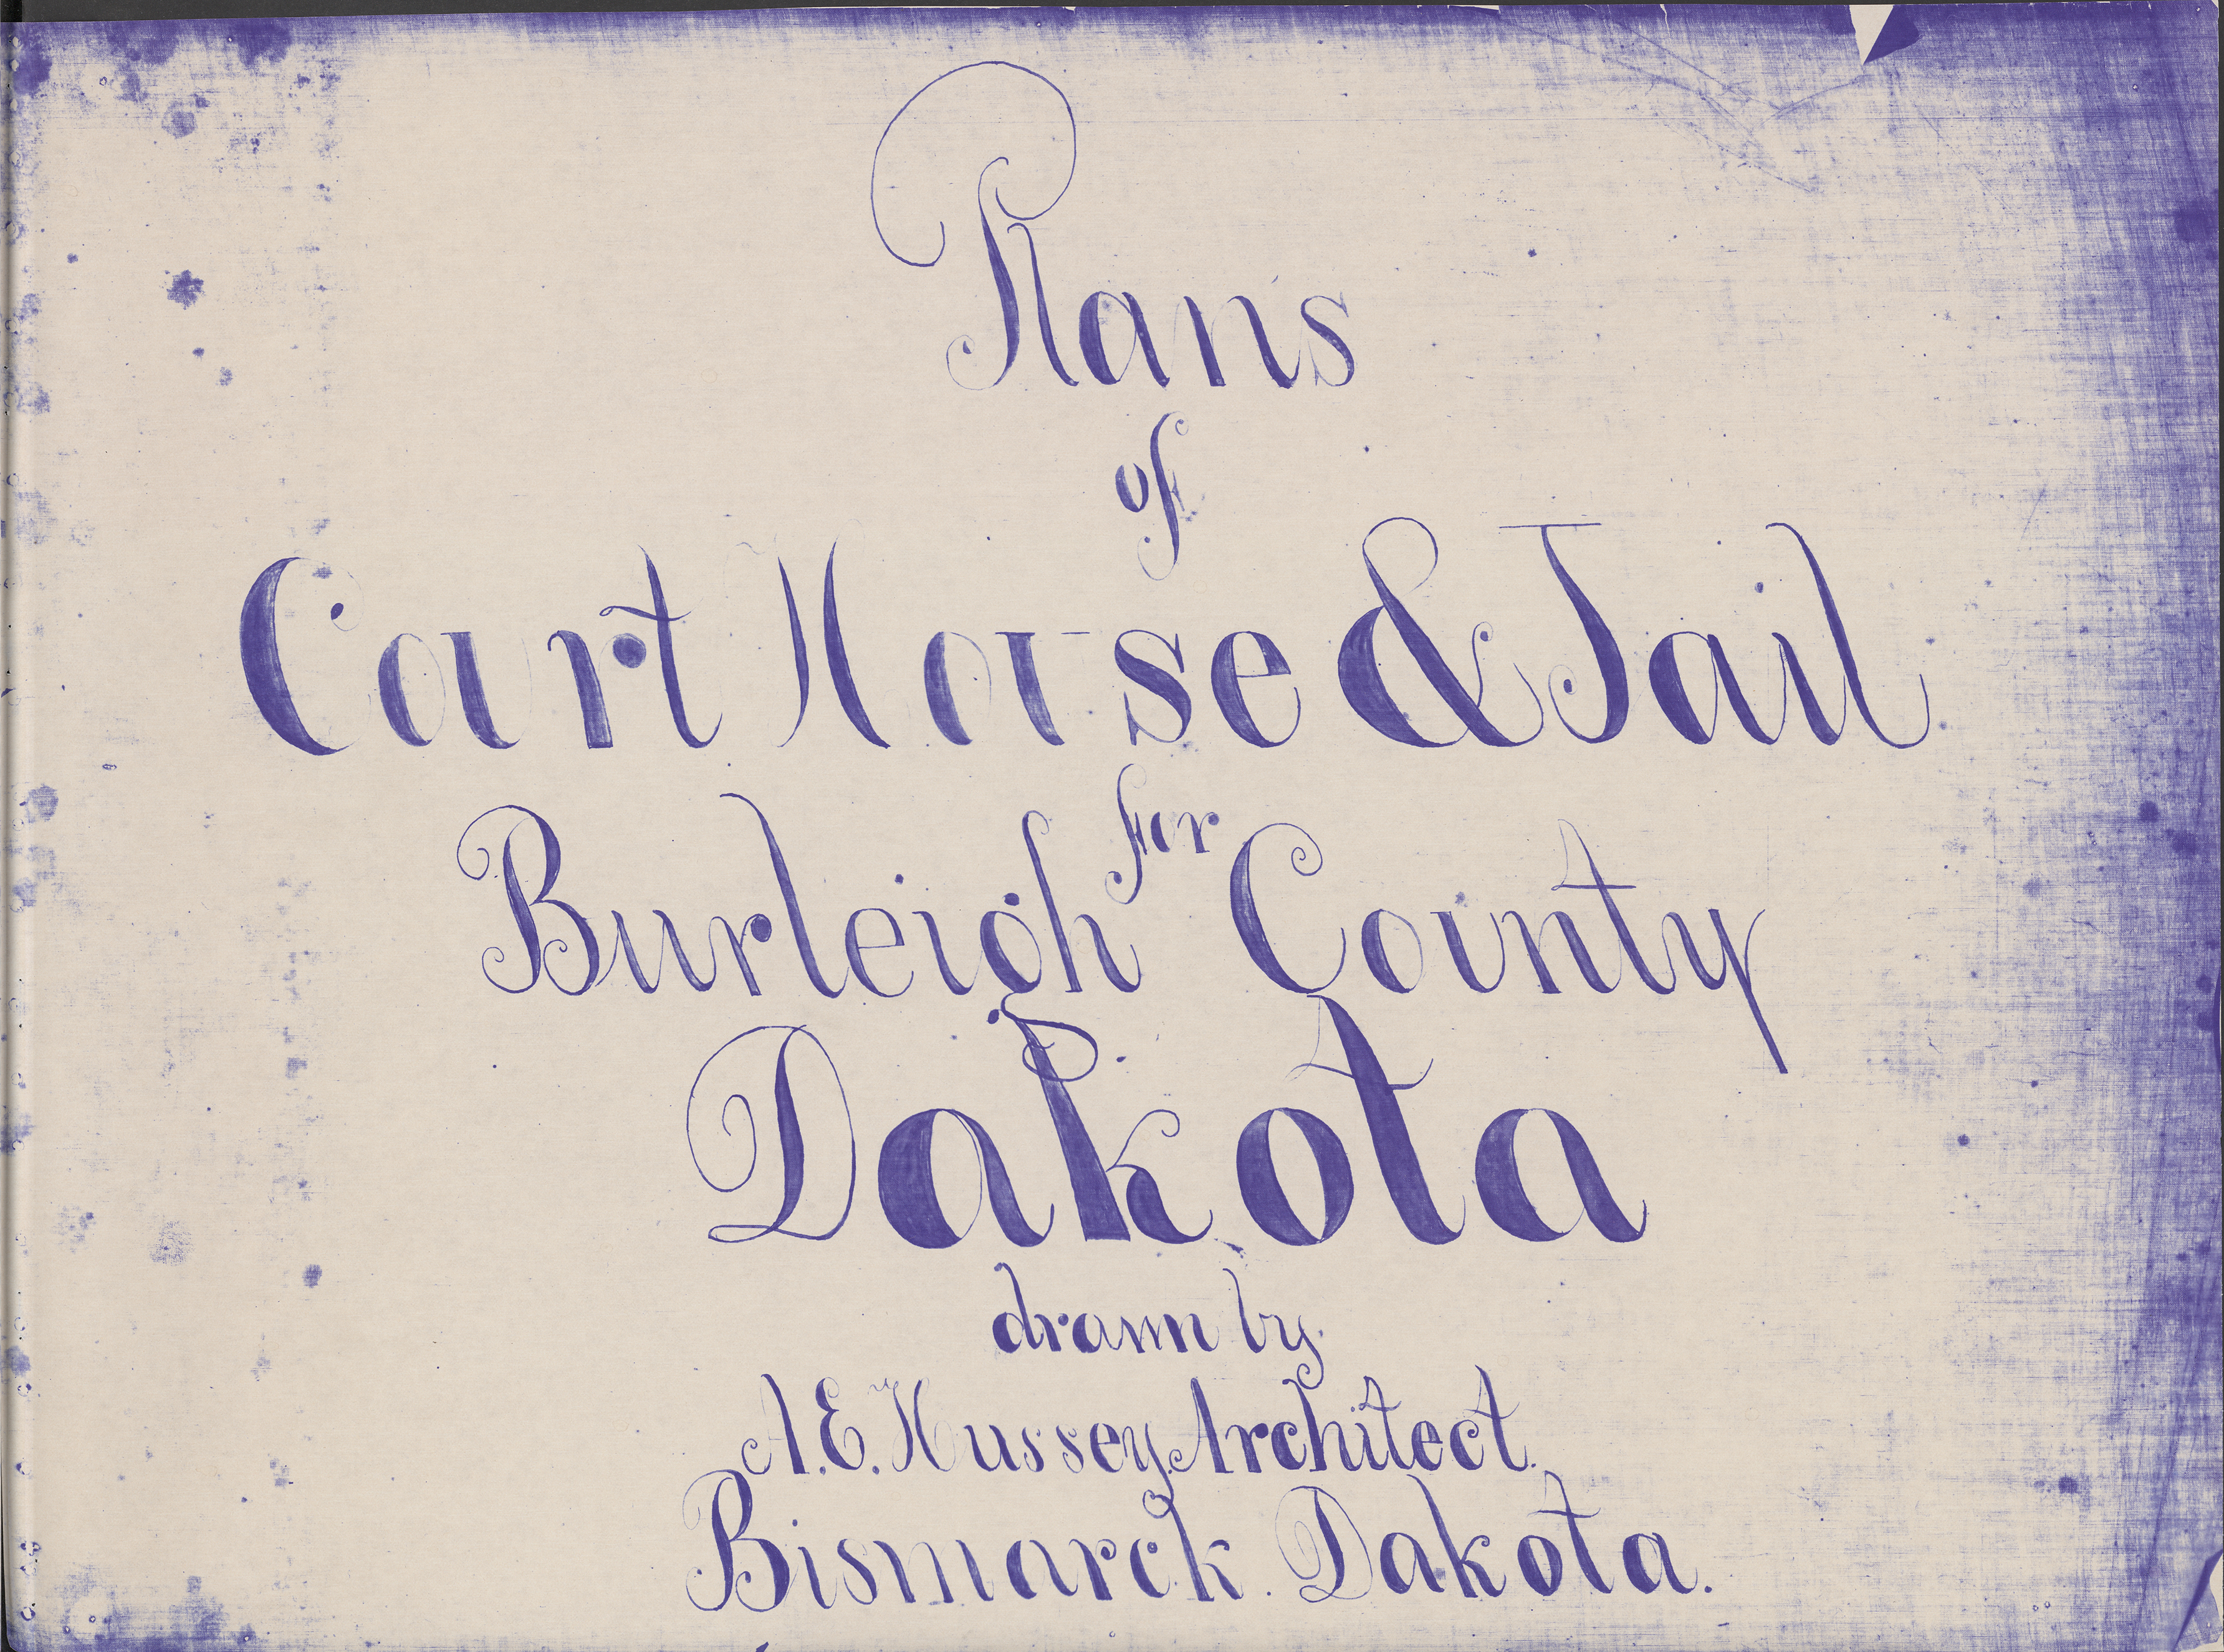 Plans
of
Court House & Jail
for
Burleigh County
Dakota
drawn by
A.E. Hussey. Architect.
Bismarck. Dakota.